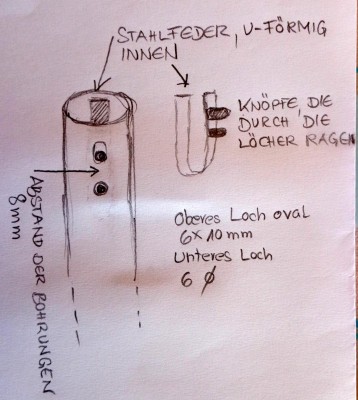 STAHLFEDER, U-FÖRMIG
INNEN
KNÖPFE, DIE
DURCH DIE
LÖCHER RAGEN
ABSTAND DER BOHRUNGEN
8mm
Oberes Loch oval
6x10mm
Unteres Loch
6 ø